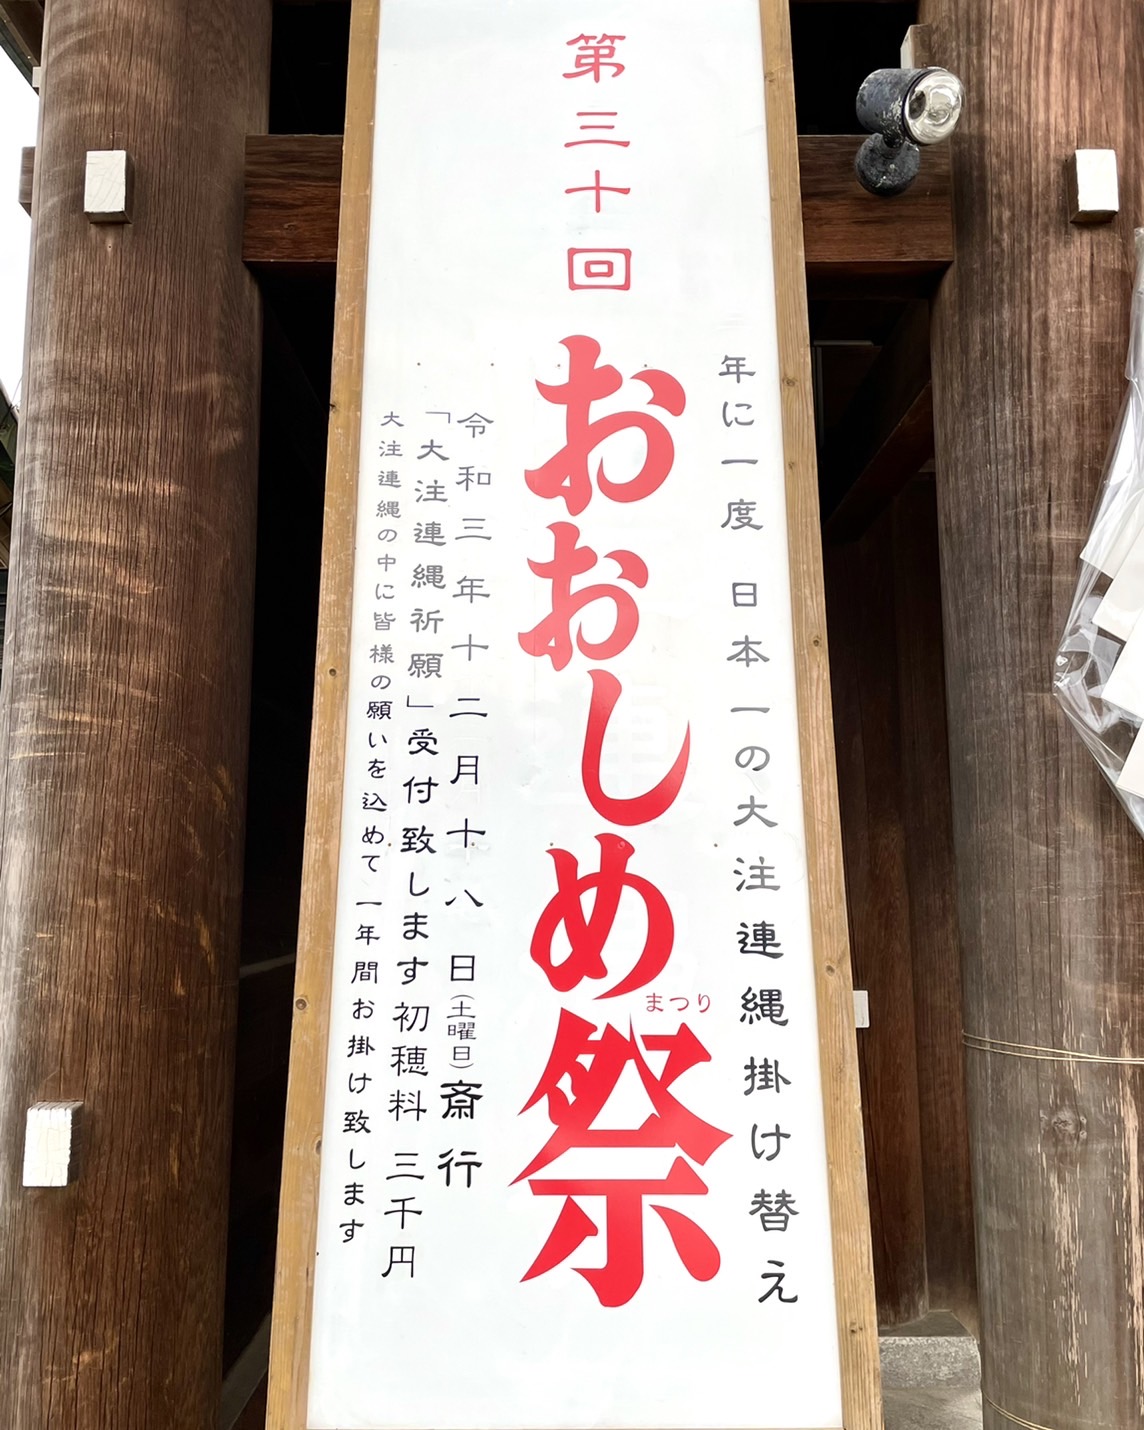 年に一度 日本一の大注連縄掛け替え
第三十回
おおしめ祭
まつり
令和三年十二月十八日(土曜日)斎行
「大注連縄祈願」受付致します初穂料 三千円
大注連縄の中に皆様の願いを込めて一年間お掛け致します